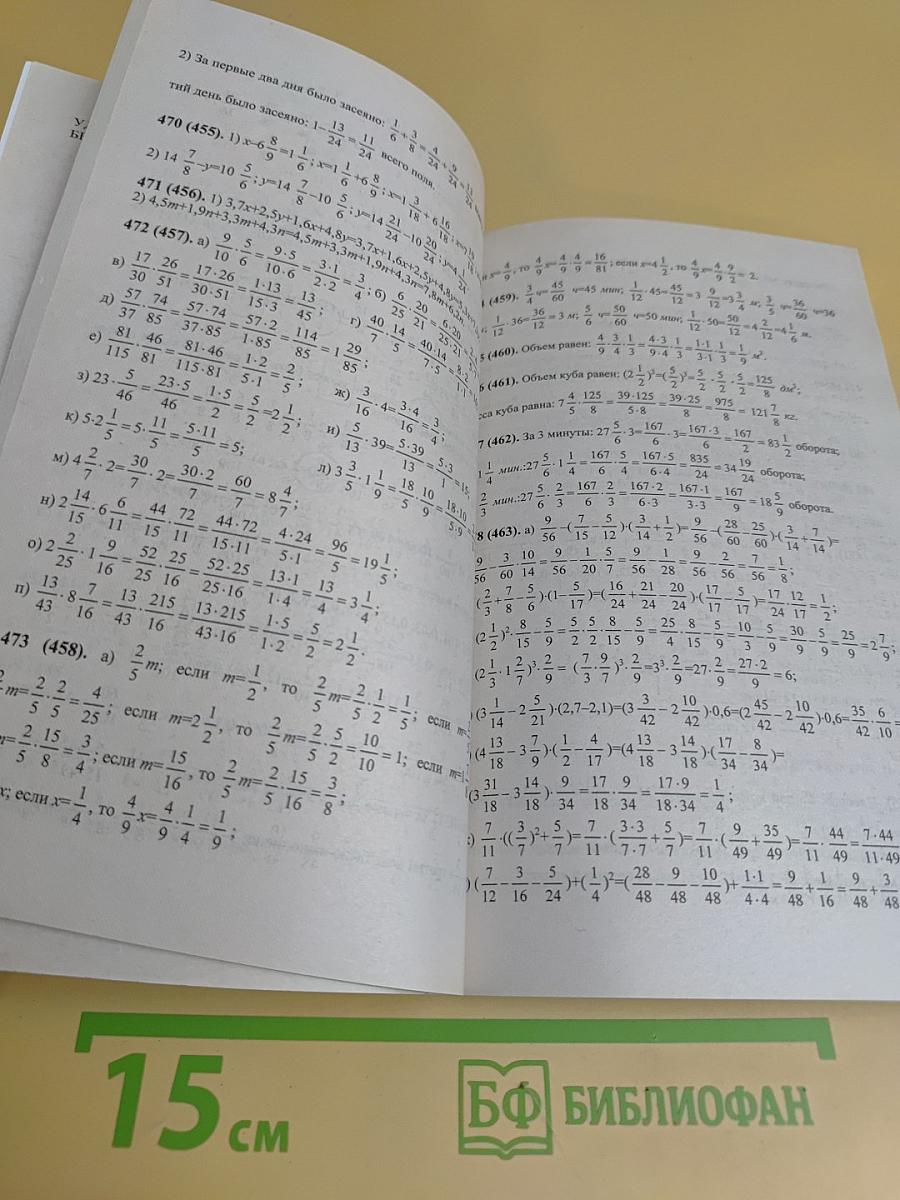 2) За первые два дня было засеяно: 1/6+3/8=4/24+9/24=13/24
тий день было засеяно: 1−13/24=11/24 всего поля.
470 (455). 1) x−6 8/9=1 1/6; x=1 1/6+6 8/9; x=1 3/18+6 16/18
2) 14 7/8−y=10 5/6; y=14 7/8−10 5/6; y=14 21/24−10 20/24
471 (456). 1) 3,7x+2,5y+1,6x+4,8y=3,7x+1,6x+2,5y+4,8y=5,3x
2) 4,5m+1,9n+3,3m+4,3n=4,5m+3,3m+1,9n+4,3n=7,8m+6,2n.
472 (457). а) 9/10·5/6=9·5/10·6=3·1/2·2=3/4; б) 6/25·20/21=6·20/25·21
в) 17/30·26/51=17·26/30·51=1·13/15·3=13/45; г) 40/7·14/5=40·14/7·5=8·2/1·1
д) 57/37·74/85=57·74/37·85=57·2/1·85=114/85=1 29/85;
е) 81/115·46/81=81·46/115·81=1·2/5·1=2/5; ж) 3/16·4=3·4/16=3/4;
з) 23·5/46=23·5/46=1·5/2=5/2=2 1/2; и) 5/13·39=5·39/13=5·3/1=15;
к) 5·2 1/5=5·11/5=5·11/5=5; л) 3 3/5·1 1/9=18/5·10/9=18·10/5·9
м) 4 2/7·2=30/7·2=30·2/7=60/7=8 4/7;
н) 2 14/15·6 6/11=44/15·72/11=44·72/15·11=4·24/5·1=96/5=19 1/5;
о) 2 2/25·1 9/16=52/25·25/16=52·25/25·16=13·1/1·4=13/4=3 1/4;
п) 13/43·8 7/16=13/43·215/16=13·215/43·16=1·5/1·2=5/2=2 1/2.
473 (458). а) 2/5 m; если m=1/2, то 2/5 m=2/5·1/2=1/5; если m=
m=2/5·2/5=4/25; если m=2 1/2, то 2/5 m=2/5·5/2=10/10=1; если m=1
m=2/5·15/8=3/4; если m=15/16, то 2/5 m=2/5·15/16=3/8;
x; если x=1/4, то 4/9 x=4/9·1/4=1/9;
x=4/9, то 4/9 x=4/9·4/9=16/81; если x=4 1/2, то 4/9 x=4/9·9/2=2.
(459). 3/4 ч=45/60 ч=45 мин; 1/12·45=45/12=3 9/12=3 3/4 м; 3/5 ч=36/60 ч=36
1/12·36=36/12=3 м; 5/6 ч=50/60 ч=50 мин; 1/12·50=50/12=4 2/12=4 1/6 м.
5 (460). Объем равен: 4/9·3/4·1/3=4·3/9·4·1/3=1·1/3·1·1/3=1/9 м³.
6 (461). Объем куба равен: (2 1/2)³=(5/2)³=5/2·5/2·5/2=125/8 дм³;
са куба равна: 7 4/5·125/8=39·125/5·8=39·25/8=975/8=121 7/8 кг.
7 (462). За 3 минуты: 27 5/6·3=167/6·3=167·3/6=167/2=83 1/2 оборота;
1 1/4 мин.:27 5/6·1 1/4=167/6·5/4=167·5/6·4=835/24=34 19/24 оборота;
2/3 мин.:27 5/6·2/3=167/6·2/3=167·2/6·3=167·1/3·3=167/9=18 5/9 оборота.
8 (463). а) 9/56−(7/15−5/12)·(3/14+1/2)=9/56−(28/60−25/60)·(3/14+7/14)=
9/56−3/60·10/14=9/56−1/20·5/7=9/56−1/28=9/56−2/56=7/56=1/8;
(2/3+7/8−5/6)·(1−5/17)=(16/24+21/24−20/24)·(17/17−5/17)=17/24·12/17=1/2;
(2 1/2)²·8/15−5/9=5/2·5/2·8/15−5/9=25/4·8/15−5/9=10/3−5/9=30/9−5/9=25/9=2 7/9;
(2 1/3·1 2/7)³·2/9=(7/3·9/7)³·2/9=3³·2/9=27·2/9=27·2/9=6;
(3 1/14−2 5/21)·(2,7−2,1)=(3 3/42−2 10/42)·0,6=(2 45/42−2 10/42)·0,6=35/42·6/10=
(4 13/18−3 7/9)·(1/2−4/17)=(4 13/18−3 14/18)·(17/34−8/34)=
(3 31/18−3 14/18)·9/34=17/18·9/34=17·9/18·34=1/4;
7/11·((3/7)²+5/7)=7/11·(3·3/7·7+5/7)=7/11·(9/49+35/49)=7/11·44/49=7·44/11·49
(7/12−3/16−5/24)+(1/4)²=(28/48−9/48−10/48)+1·1/4·4=9/48+1/16=9/48+3/48
15 см
БФ БИБЛИОФАН